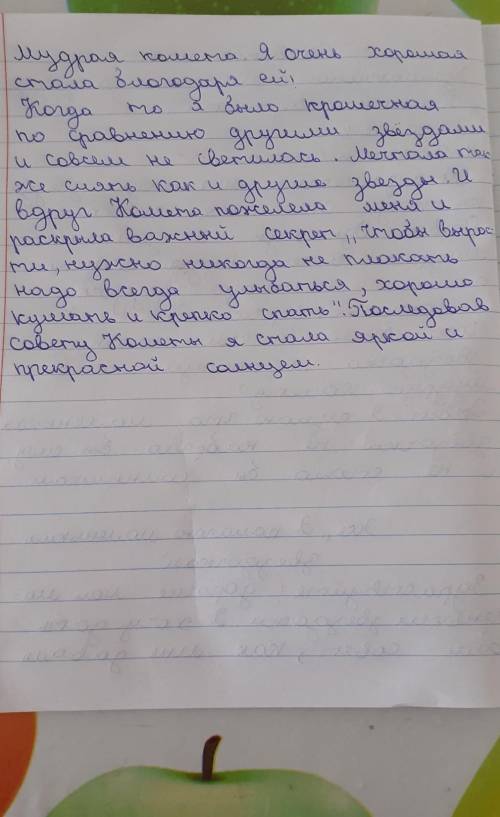 Мудрая комета. Я очень хорошая
стала благодаря ей!
Когда то я было крошечная
по сравнению другими звёздами
и совсем не светилась. Мечтала так
же сиять как и другие звезды. И
вдруг Комета пожелела меня и
раскрыла важный секрет „Чтобы вырос-
ти, нужно никогда не плакать
надо всегда улыбаться, хорошо
кушать и крепко спать". Последовав
совету Кометы я стала яркой и
прекрасной солнцем.